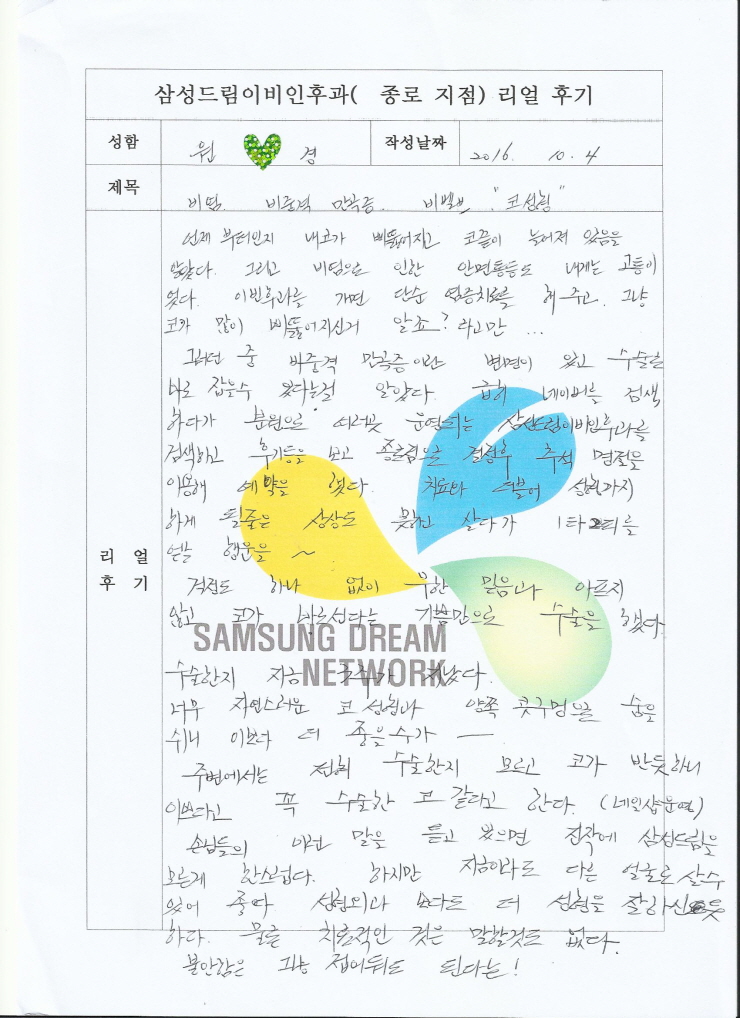 삼성드림이비인후과( 종로 지점) 리얼 후기
성함 원 경 작성날짜 2016. 10. 4
제목 비염. 비중격 만곡증. 비밸브 "코성형"
언제 부터인지 내코가 삐뚤어지고 코끝이 늘어져 있음을
알았다. 그리고 비염으로 인한 안면통증도 내게는 고통이
었다. 이빈후과를 가면 단순 염증치료를 해 주고. 그냥
코가 많이 삐뚤어지신거 알죠? 라고만 ...
그러던 중 비중격 만곡증이란 병명이 있고 수술로
바로 잡을수 있다는걸 알았다. 급히 네이버를 검색
하다가 분원으로 여러곳 운영되는 삼성드림이비인후과를
검색하고 후기등을 보고 종로점으로 결정후 추석 명절을
이용해 예약을 했다. 치료와 더불어 성형까지
하게 될줄은 상상도 못하고 살다가 1타2피를
얻는 행운을 ~
리 얼
후 기
걱정도 하나 없이 무한 믿음과 아프지
않고 코가 바로선다는 기쁨만으로 수술을 했다.
SAMSUNG DREAM
NETWORK
수술한지 지금 지났다.
너무 자연스러운 코 성형과 양쪽 콧구멍으로 숨을
쉬니 이보다 더 좋을수가 —
주변에서는 전혀 수술한지 모르고 코가 반듯하니
이쁘다고 꼭 수술한 코 같다고 한다. (네일샵운영)
손님들의 이런 말을 듣고 있으면 진작에 삼성드림을
모른게 한스럽다. 하지만 지금이라도 다른 얼굴로 살수
있어 좋다 성형외과 보다도 더 성형을 잘하신듯
하다. 물론 치료적인 것은 말할것도 없다.
불안감은 그냥 접어둬도 된다는!